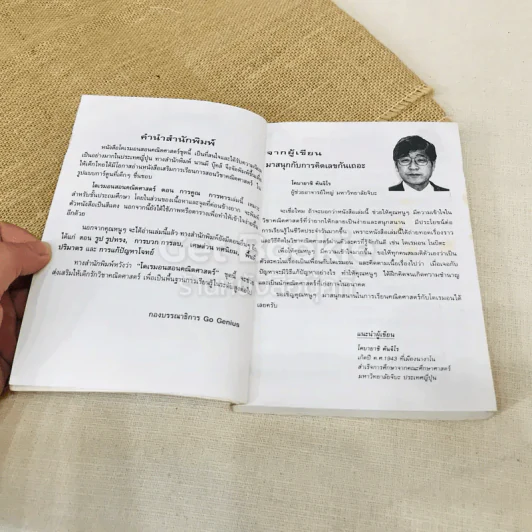 คำนำสำนักพิมพ์
หนังสือโดเรมอนสอนคณิตศาสตร์ชุดนี้ เป็นที่สนใจและได้รับความนิยม
เป็นอย่างมากในประเทศญี่ปุ่น ทางสำนักพิมพ์ นานมี บุ๊คส์ จึงจัดพิมพ์ขึ้น
ให้เด็กไทยได้มีโอกาสอ่านหนังสือเสริมการเรียนการสอนวิชาคณิตศาสตร์ ใน
รูปแบบการ์ตูนที่เด็กๆ ชื่นชอบ
โดเรมอนสอนคณิตศาสตร์ ตอน การคูณ การหาร
สำหรับชั้นประถมศึกษา โดยในส่วนของเนื้อหา
ตัวหนังสือเป็นสีแดง นอกจากนี้ยังได้ใช้ภาพหรือตาราง
อีกด้วย
นอกจากคุณหนูๆ จะได้อ่านเล่มนี้แล้ว ทางสำนักพิมพ์ยังมี
ได้แก่ ตอน รูป รูปทรง, การบวก การลบ, เศษส่วน ทศนิยม,
ปริมาตร และ การแก้ปัญหาโจทย์
ทางสำนักพิมพ์หวังว่า "โดเรมอนสอนคณิตศาสตร์" ชุดนี้
ส่งเสริมให้เด็กรักวิชาคณิตศาสตร์ เพื่อเป็นพื้นฐานการเรียนรู้ในระดับ
กองบรรณาธิการ Go Genius
จากผู้เขียน
มาสนุกกับการคิดเลขกันเถอะ
โคบายาชิ คันจิโร
ผู้ช่วยอาจารย์ใหญ่ มหาวิทยาลัยจิบะ
จะเชื่อไหม ถ้าจะบอกว่าหนังสือเล่มนี้ ช่วยให้คุณหนูๆ มีความเข้าใจใน
วิชาคณิตศาสตร์ที่ว่ายากให้กลายเป็นง่ายและสนุกสนาน มีประโยชน์ต่อ
การเรียนรู้ในชีวิตประจำวันมากขึ้น เพราะหนังสือเล่มนี้ได้ถ่ายทอดเรื่องราว
และวิธีคิดในวิชาคณิตศาสตร์ผ่านตัวละครที่รู้จักกันดี เช่น โดเรมอน โนบิตะ
เพื่อให้คุณหนูๆ มีความเข้าใจมากขึ้น ขอให้ทุกคนสมมติตัวเองว่าเป็น
ตัวละครในเรื่องเป็นเพื่อนกับโดเรมอน และติดตามเนื้อเรื่องไปว่า เมื่อเจอกับ
ปัญหาจะมีวิธีแก้ปัญหาอย่างไร ทำให้คุณหนูๆ ได้ฝึกคิดจนเกิดความชำนาญ
และเป็นนักคณิตศาสตร์ที่เก่งกาจในอนาคต
ขอเชิญคุณหนูๆ มาสนุกสนานในการเรียนคณิตศาสตร์กับโดเรมอนได้
เลยครับ
แนะนำผู้เขียน
โคบายาชิ คันจิโร
เกิดปี ค.ศ.1943 ที่เมืองนางาโน
สำเร็จการศึกษาจากคณะศึกษาศาสตร์
มหาวิทยาลัยจิบะ ประเทศญี่ปุ่น